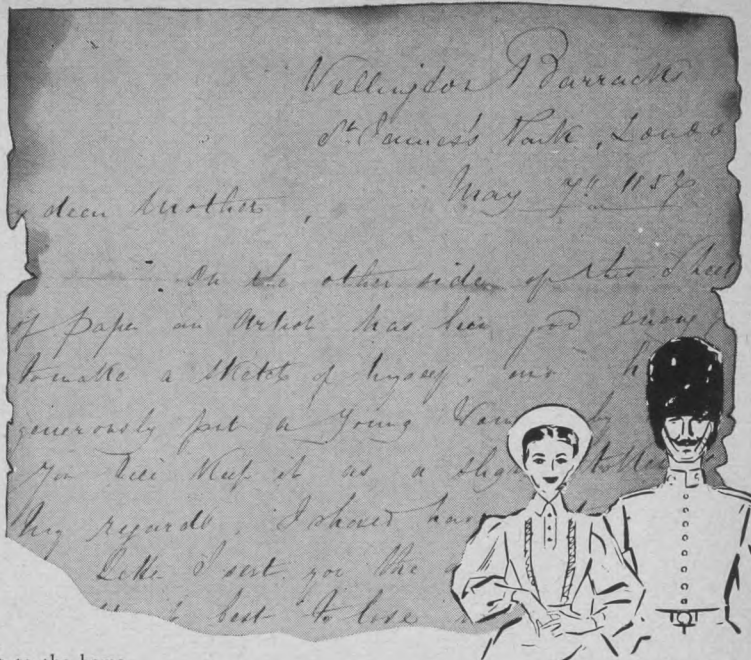 Wellingdon Barracks
St. James's Park, Londo
May 7th 1857
y dear Mother,
On the other side of this Shee
of paper an Artist has been good enoug
to make a sketch of myself. and h
generously put a Young Wom by
you will keep it as a sligh token
My regards. I should hav
Letter I sent you the a
best to lose
to the house